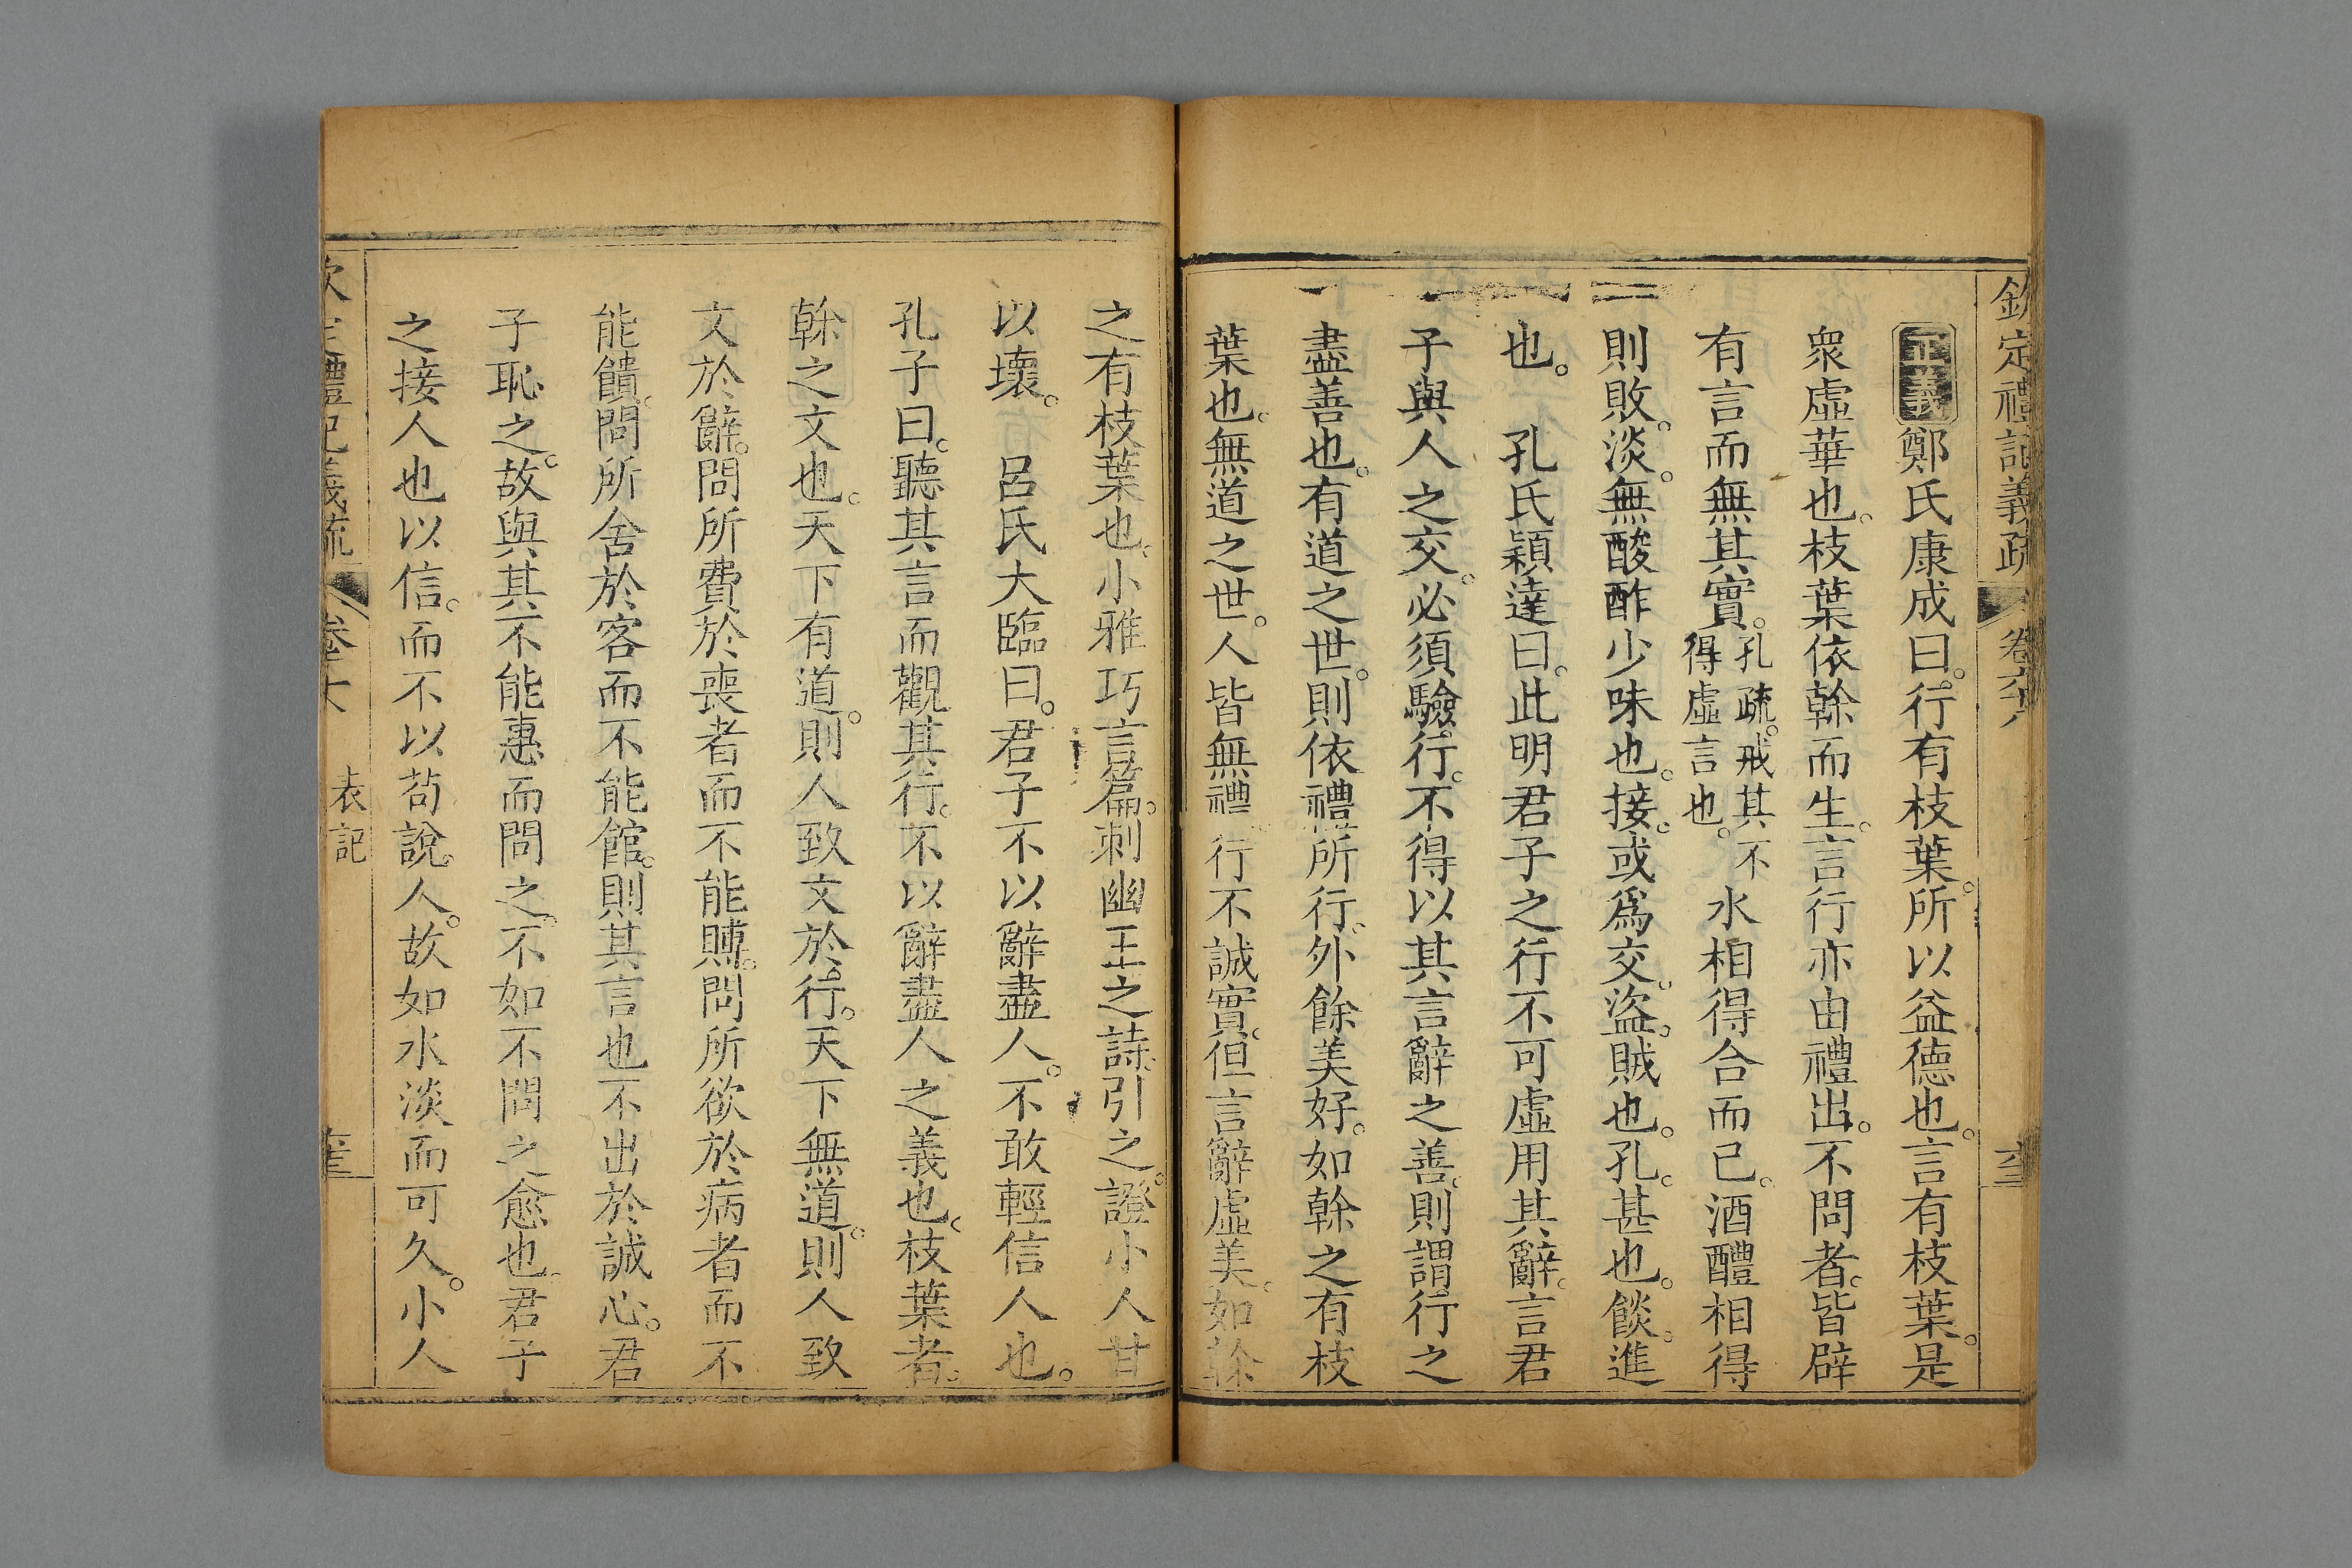 欽定禮記義疏 卷六八 六三
正義鄭氏康成曰。行有枝葉。所以益德也。言有枝葉。是
衆虛華也。枝葉依榦而生。言行亦由禮出。不問者。皆辟
有言而無其實。孔疏。戒其不得虛言也。水相得合而已。酒醴相得
則敗。淡。無酸酢少味也。接。或爲交。盜。賊也。孔。甚也。餤。進
也。 孔氏穎達曰。此明君子之行不可虛用其辭。言君
子與人之交。必須驗行。不得以其言辭之善。則謂行之
盡善也。有道之世。則依禮所行。外餘美好。如榦之有枝
葉也。無道之世。人皆無禮行不誠實。但言辭虛美。如榦
之有枝葉也。小雅巧言篇。刺幽王之詩。引之。證小人甘
以壞。 呂氏大臨曰。君子不以辭盡人。不敢輕信人也。
孔子曰。聽其言而觀其行。不以辭盡人之義也。枝葉者。
榦之文也。天下有道。則人致文於行。天下無道。則人致
文於辭。問所費於喪者而不能賻。問所欲於病者而不
能饋。問所舍於客而不能館。則其言也不出於誠心。君
子恥之。故與其不能惠而問之。不如不問之愈也。君子
之接人也以信。而不以苟說人。故如水淡而可久。小人
禮記義疏 卷 表記